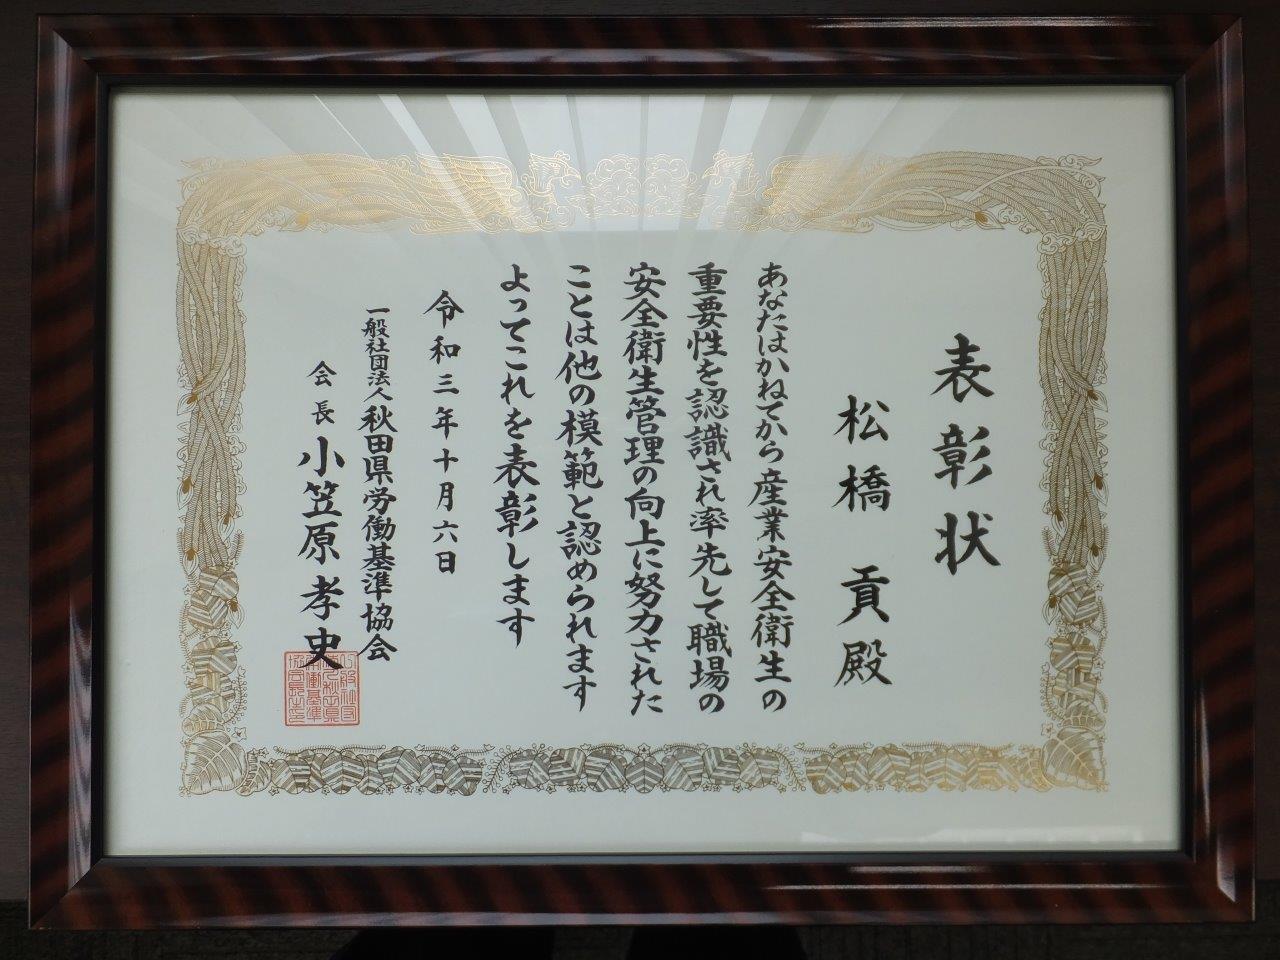 表彰状
松橋 貢 殿
あなたはかねてから産業安全衛生の
重要性を認識され率先して職場の
安全衛生管理の向上に努力された
ことは他の模範と認められます
よってこれを表彰します
令和三年十月六日
一般社団法人 秋田県労働基準協会
会長 小笠原孝史